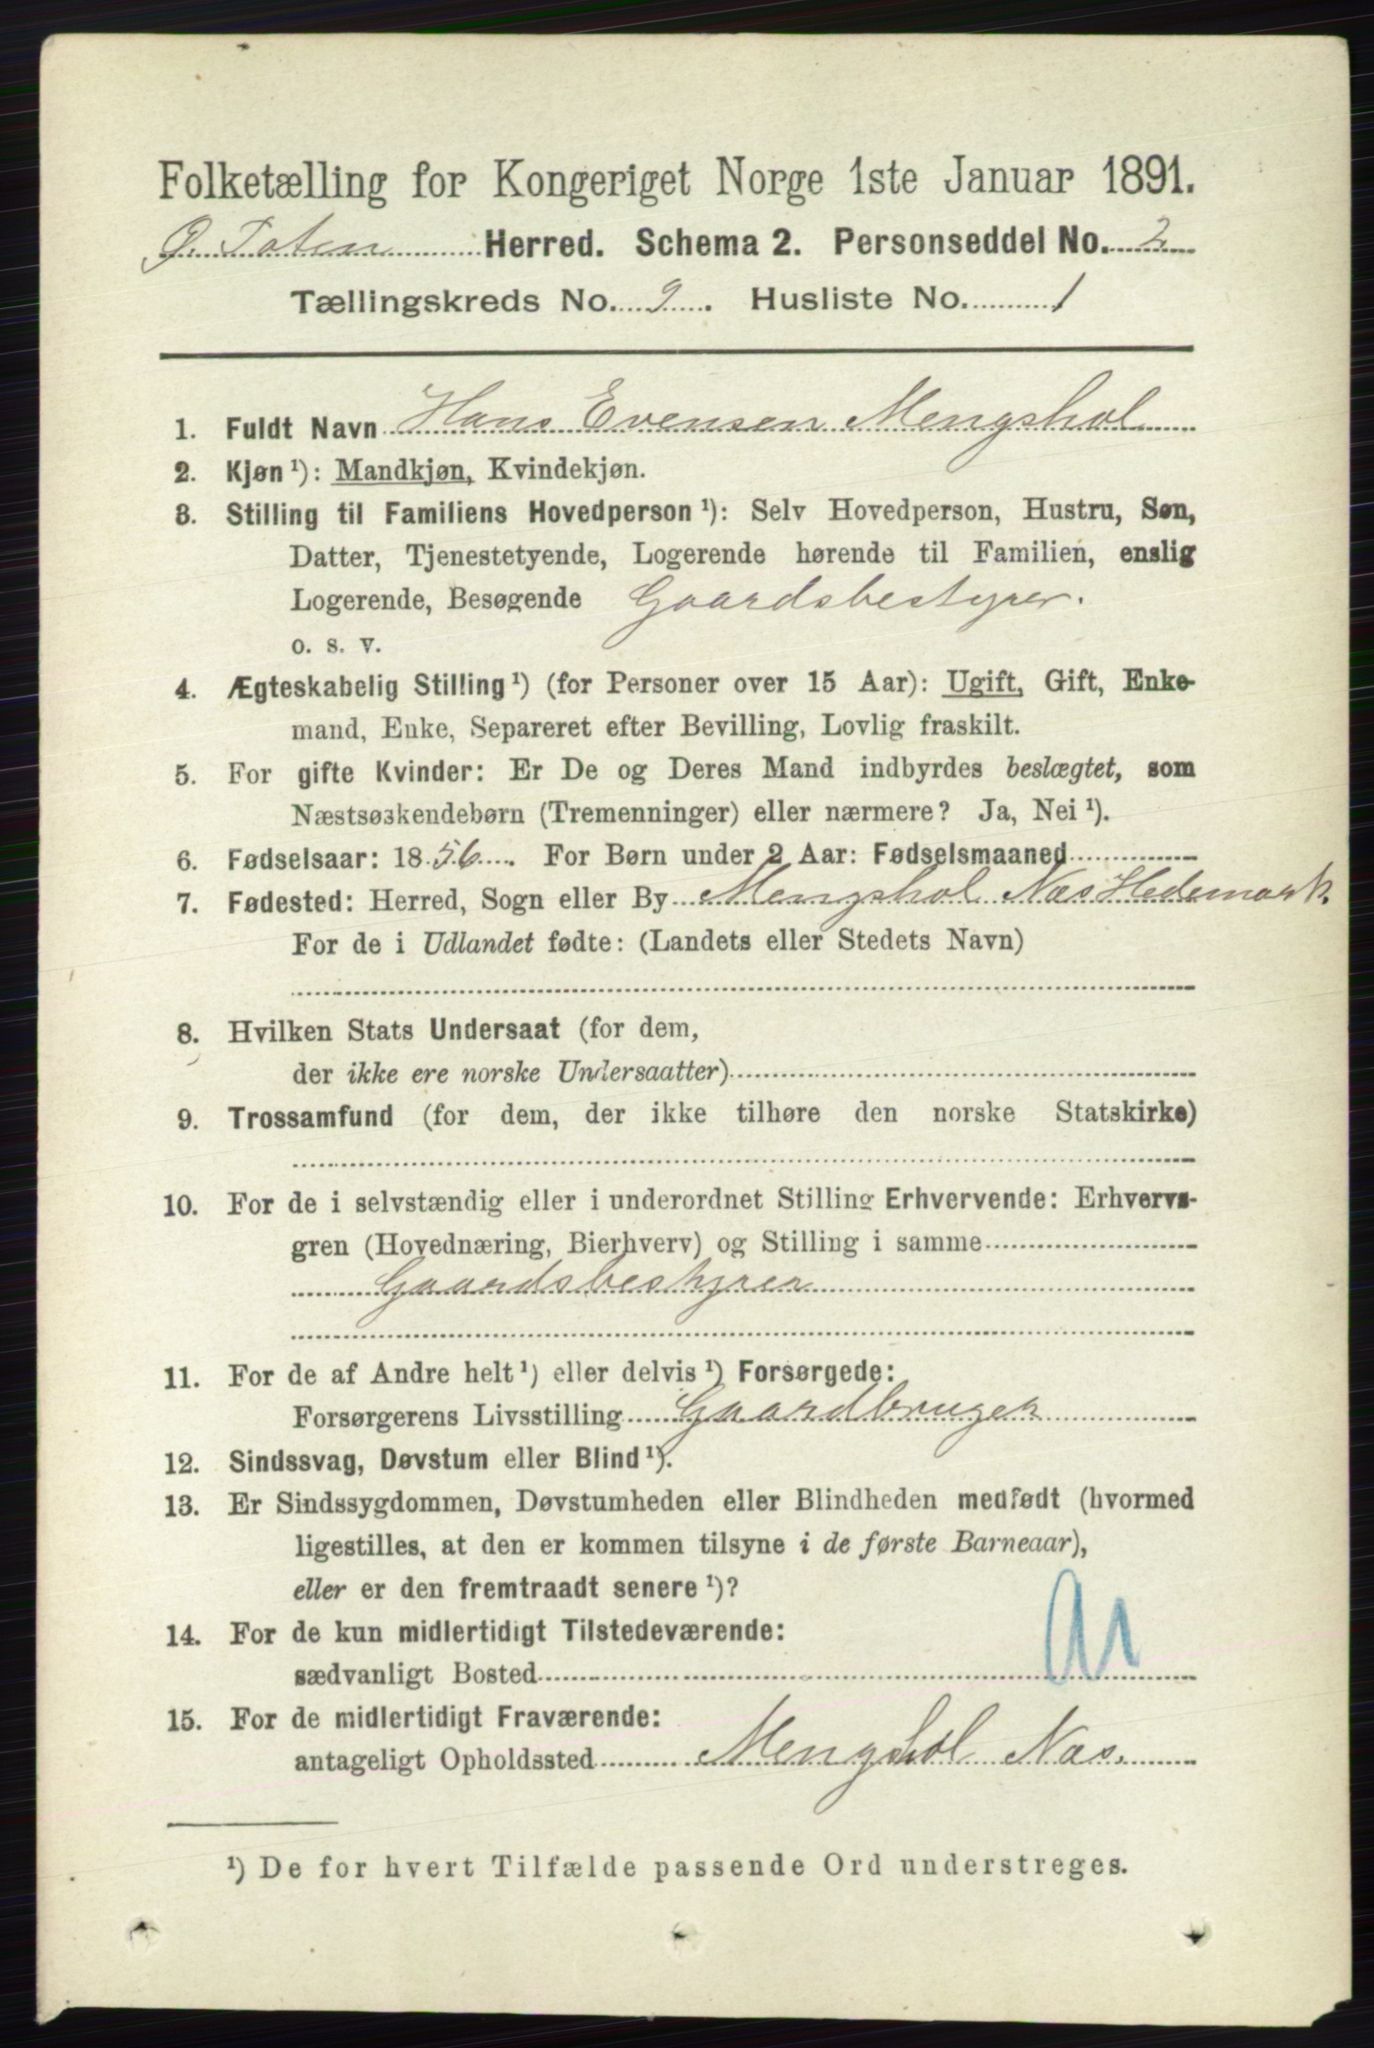 Folketælling for Kongeriget Norge 1ste Januar 1891.
Ø. Toten Herred. Schema 2. Personseddel No. 2
Tællingskreds No. 9. Husliste No. 1
1. Fuldt Navn Hans Evensen Mengshol
2. Kjøn¹): Mandkjøn, Kvindekjøn.
3. Stilling til Familiens Hovedperson¹): Selv Hovedperson, Hustru, Søn,
Datter, Tjenestetyende, Logerende hørende til Familien, enslig
Logerende, Besøgende Gaardsbestyrer.
o. s. v.
4. Ægteskabelig Stilling¹) (for Personer over 15 Aar): Ugift, Gift, Enke-
mand, Enke, Separeret efter Bevilling, Lovlig fraskilt.
5. For gifte Kvinder: Er De og Deres Mand indbyrdes beslægtet, som
Næstsøskendebørn (Tremenninger) eller nærmere? Ja, Nei¹).
6. Fødselsaar: 1856. For Børn under 2 Aar: Fødselsmaaned
7. Fødested: Herred, Sogn eller By Mengshol Næs Hedemark.
For de i Udlandet fødte: (Landets eller Stedets Navn)
8. Hvilken Stats Undersaat (for dem,
der ikke ere norske Undersaatter)
9. Trossamfund (for dem, der ikke tilhøre den norske Statskirke)
10. For de i selvstændig eller i underordnet Stilling Erhvervende: Erhvervs-
gren (Hovednæring, Bierhverv) og Stilling i samme
Gaardsbestyrer
11. For de af Andre helt¹) eller delvis¹) Forsørgede:
Forsørgerens Livsstilling Gaardbruger
12. Sindssvag, Døvstum eller Blind¹).
13. Er Sindssygdommen, Døvstumheden eller Blindheden medfødt (hvormed
ligestilles, at den er kommen tilsyne i de første Barneaar),
eller er den fremtraadt senere¹)?
14. For de kun midlertidigt Tilstedeværende:
sædvanligt Bosted
15. For de midlertidigt Fraværende:
antageligt Opholdssted Mengshol Næs.
¹) De for hvert Tilfælde passende Ord understreges.